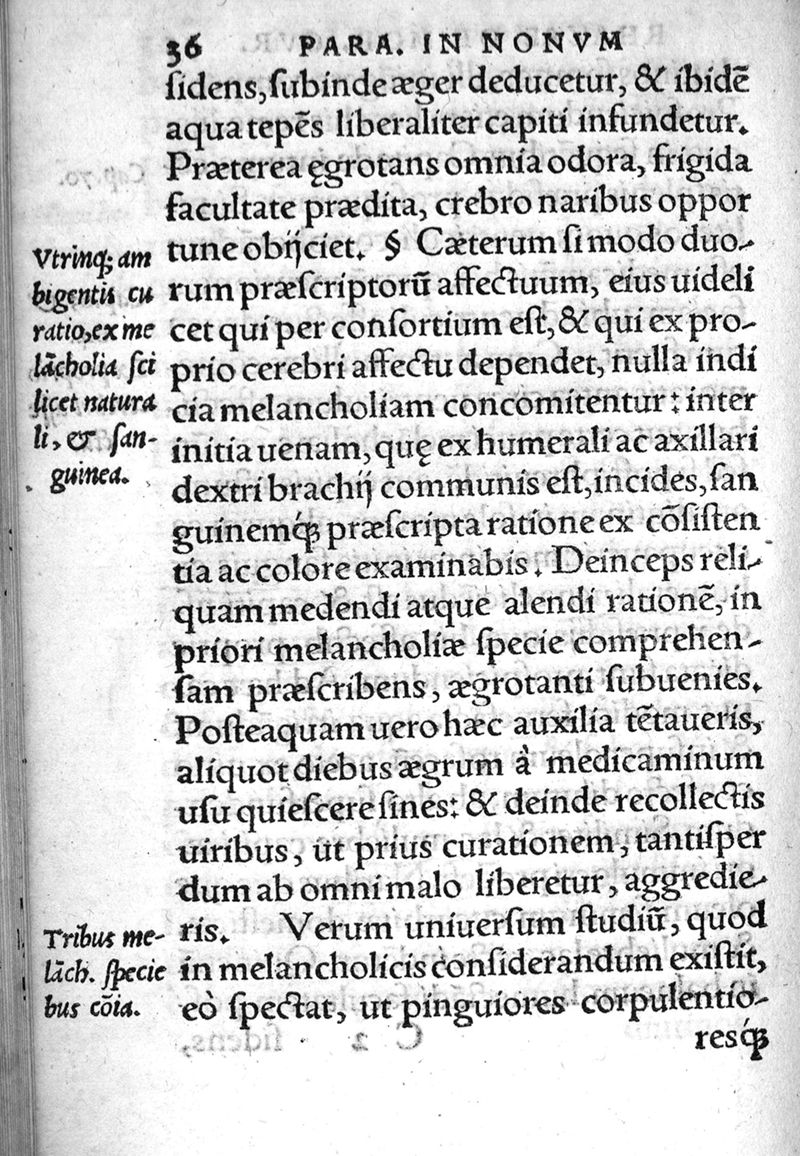 36 PARA. IN NONVM
ſidens, ſubinde æger deducetur, & ibidē
aqua tepēs liberaliter capiti infundetur.
Præterea ęgrotans omnia odora, frigida
facultate prædita, crebro naribus oppor
tune obijciet. § Cæterum ſi modo duo-
rum præſcriptorū affectuum, eius uideli
cet qui per conſortium eſt, & qui ex pro-
prio cerebri affectu dependet, nulla indi
cia melancholiam concomitentur: inter
initia uenam, quę ex humerali ac axillari
dextri brachij communis eſt, incides, ſan
guinemq́ꝫ præſcripta ratione ex cōſiſten
tia ac colore examinabis. Deinceps reli-
quam medendi atque alendi rationē, in
priori melancholiæ ſpecie comprehen-
ſam præſcribens, ægrotanti ſubuenies.
Poſteaquam uero hæc auxilia tētaueris,
aliquot diebus ægrum à medicaminum
uſu quieſcere ſines: & deinde recollectis
uiribus, ut prius curationem, tantiſper
dum ab omni malo liberetur, aggredie-
ris. Verum uniuerſum ſtudiū, quod
in melancholicis conſiderandum exiſtit,
eò ſpectat, ut pinguiores corpulentio-
resq́ꝫ
Vtrinqꝫ am
bigentis cu
ratio, ex me
lācholia ſci
licet natura
li, & ſan-
guinea.
Tribus me-
lāch. ſpecie
bus cōia.